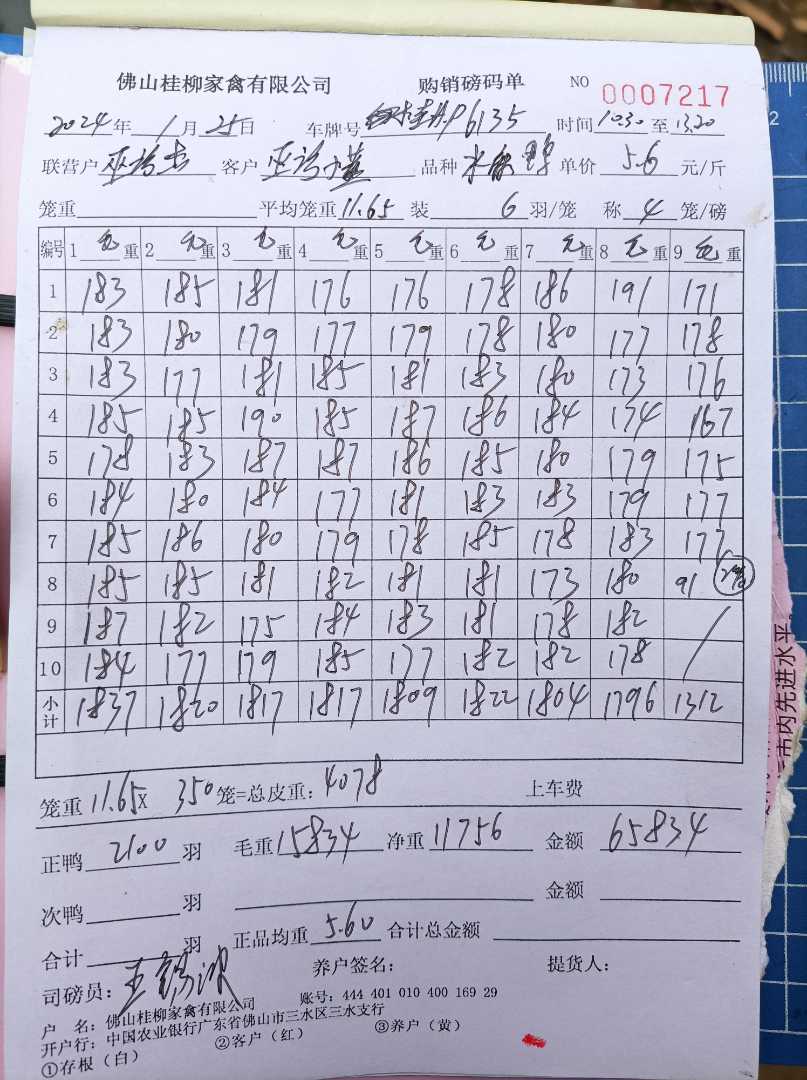 佛山桂柳家禽有限公司 购销磅码单 NO 0007217
2024年 1月 25日 车牌号 P6135 时间 10.30 至 13.20
联营户 客户 品种 水 单价 5.6 元/斤
笼重 平均笼重 11.65 装 6 羽/笼 称 4 笼/磅
编号 1 毛重 2 毛重 3 毛重 4 毛重 5 毛重 6 毛重 7 毛重 8 毛重 9 毛重
1 183 185 181 176 176 178 186 191 171
2 183 180 179 177 179 178 180 177 178
3 183 177 181 185 181 183 180 173 176
4 185 185 190 185 187 186 184 174 167
5 178 183 187 187 186 185 180 179 175
6 184 180 184 177 181 183 183 179 177
7 185 186 180 179 178 185 178 183 177
8 185 185 181 182 181 181 173 180 91
9 187 182 175 184 183 181 178 182 /
10 184 177 179 185 177 182 182 178
小计 1837 1820 1817 1817 1809 1822 1804 1796 1312
笼重 11.65 x 350 笼=总皮重: 4078 上车费
正鸭 2100 羽 毛重 15834 净重 11756 金额 65834
次鸭 羽 金额
合计 羽 正品均重 5.60 合计总金额
司磅员: 养户签名: 提货人:
户 名: 佛山桂柳家禽有限公司 账号: 444 401 010 400 169 29
开户行: 中国农业银行广东省佛山市三水区三水支行
①存根（白） ②客户（红） ③养户（黄）
市内先进水平